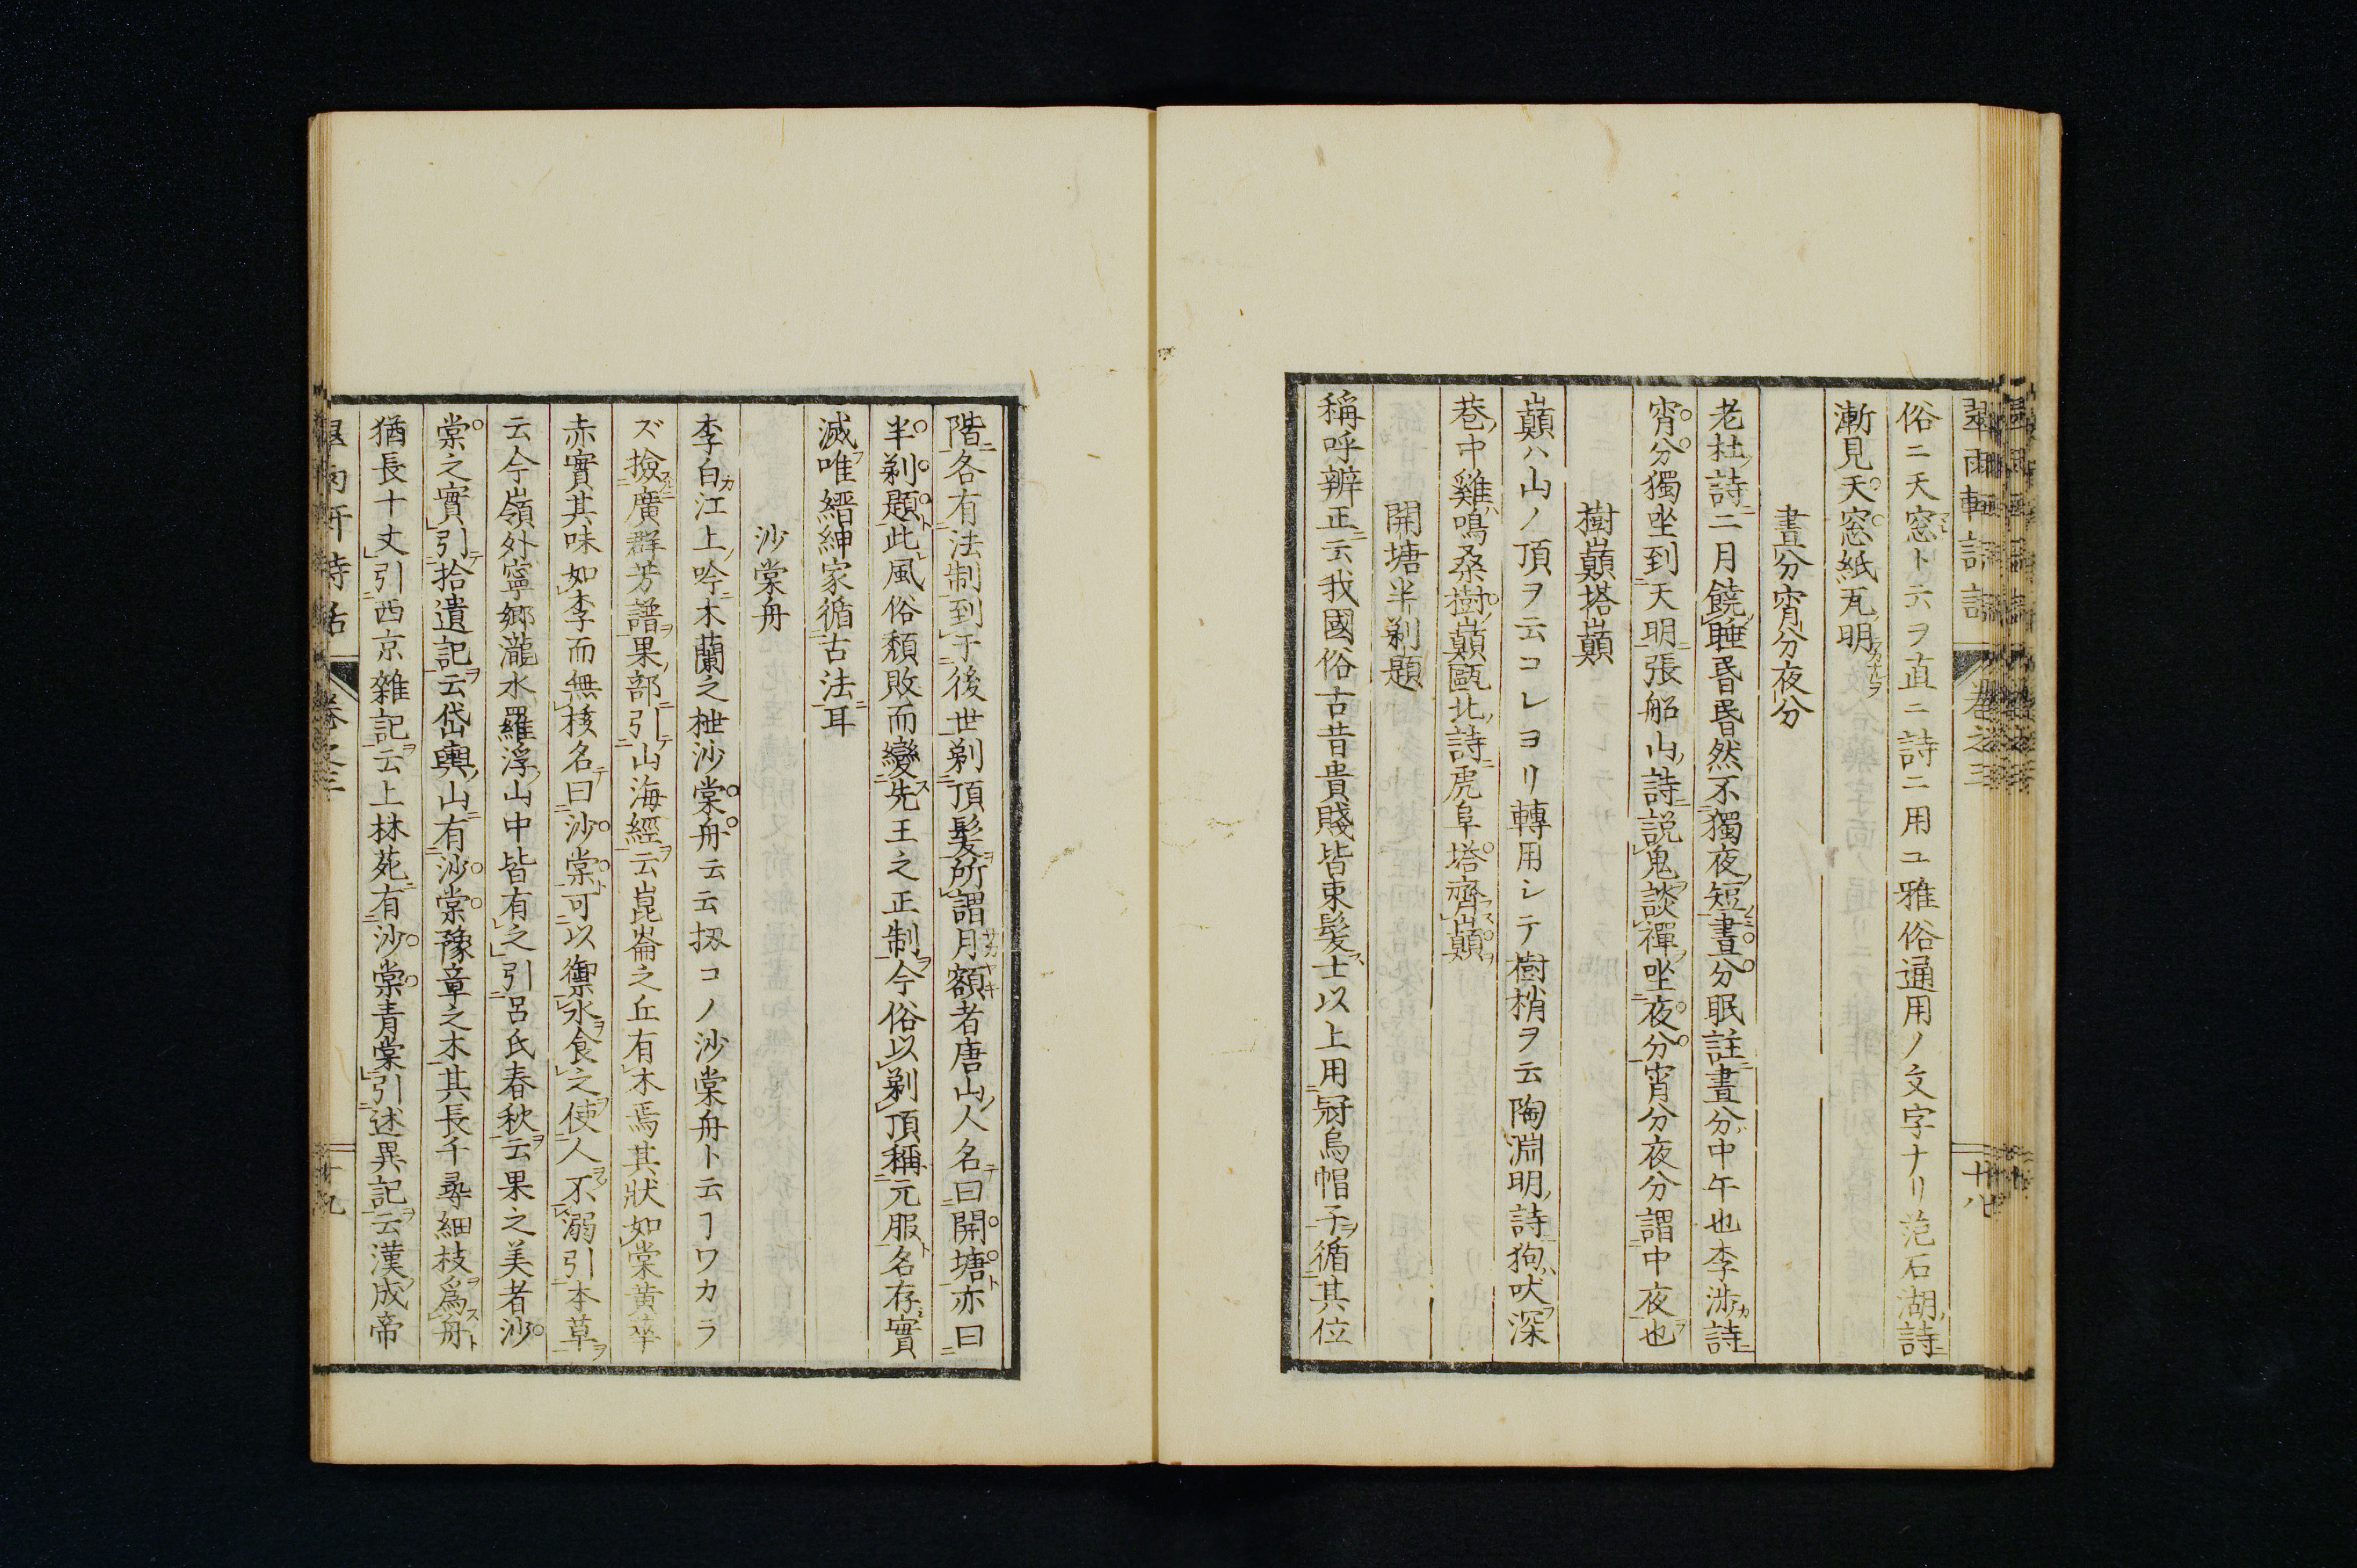 翠雨軒詩話　卷之三　十八
俗ニ天窓ト云フヲ直ニ詩ニ用ユ雅俗通用ノ文字ナリ范石湖詩
漸見天窓紙瓦明
晝分宵分夜分
老杜詩二月饒睡昏昏然不獨夜短晝分眠註晝分中午也李渉詩
宵分獨坐到天明張船山詩説鬼談禪坐夜分宵分夜分謂中夜也
樹巓塔巓
巓ハ山ノ頂ヲ云コレヨリ轉用シテ樹梢ヲ云陶淵明詩狗吠深
巷中雞鳴桑樹巓甌北詩虎阜塔齊巓
開塘半剃題
稱呼辨正云我國俗古昔貴賤皆束髪士以上用冠烏帽子循其位
階各有法制到于後世剃頂髪所謂月額者唐山人名曰開塘亦曰
半剃題此風俗頽敗而變先王之正制今俗以剃頂稱元服名存實
滅唯縉紳家循古法耳
沙棠舟
李白江上吟木蘭之枻沙棠舟云云扨コノ沙棠舟ト云ヿワカラ
ズ撿廣群芳譜果部引山海經云崑崙之丘有木焉其狀如棠黄華
赤實其味如李而無核名曰沙棠可以禦水食之使人不溺引本草
云今嶺外寧郷瀧水羅浮山中皆有之引呂氏春秋云果之美者沙
棠之實引拾遺記云岱輿山有沙棠豫章之木其長千尋細枝爲舟
猶長十丈引西京雜記云上林苑有沙棠青棠引述異記云漢成帝
翠雨軒詩話　卷之三　十九